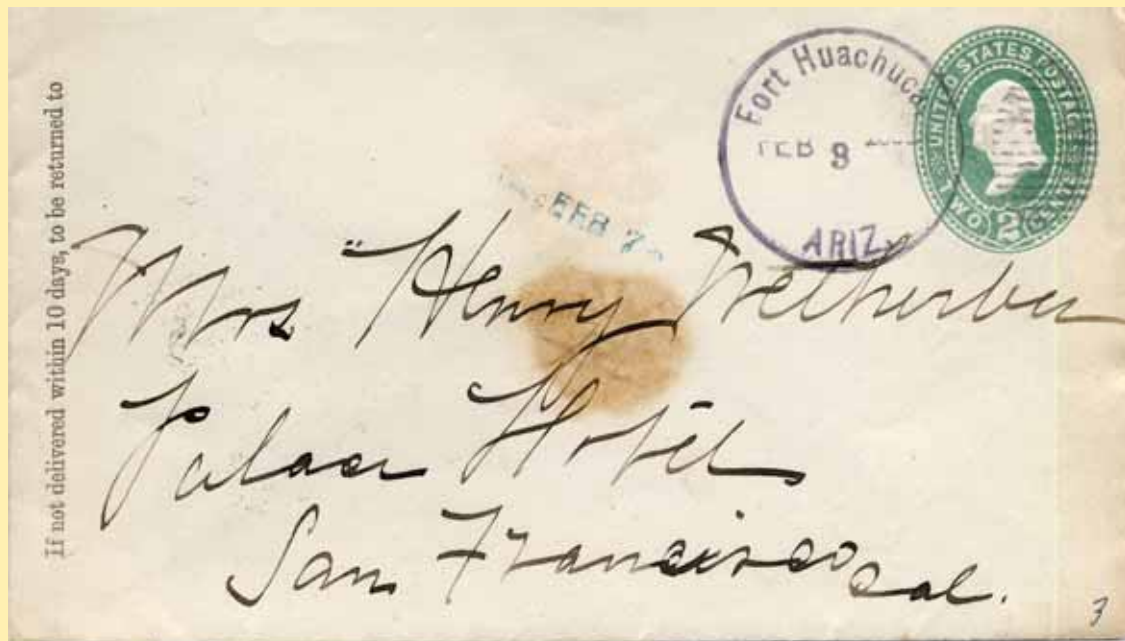 If not delivered within 10 days, to be returned to
Fort Huachuca
FEB 8
ARIZ.
UNITED STATES POSTAGE
TWO 2 CENTS
FEB 7
Mrs Henry Wetherbee
Palace Hotel
San Francisco
Cal.
3